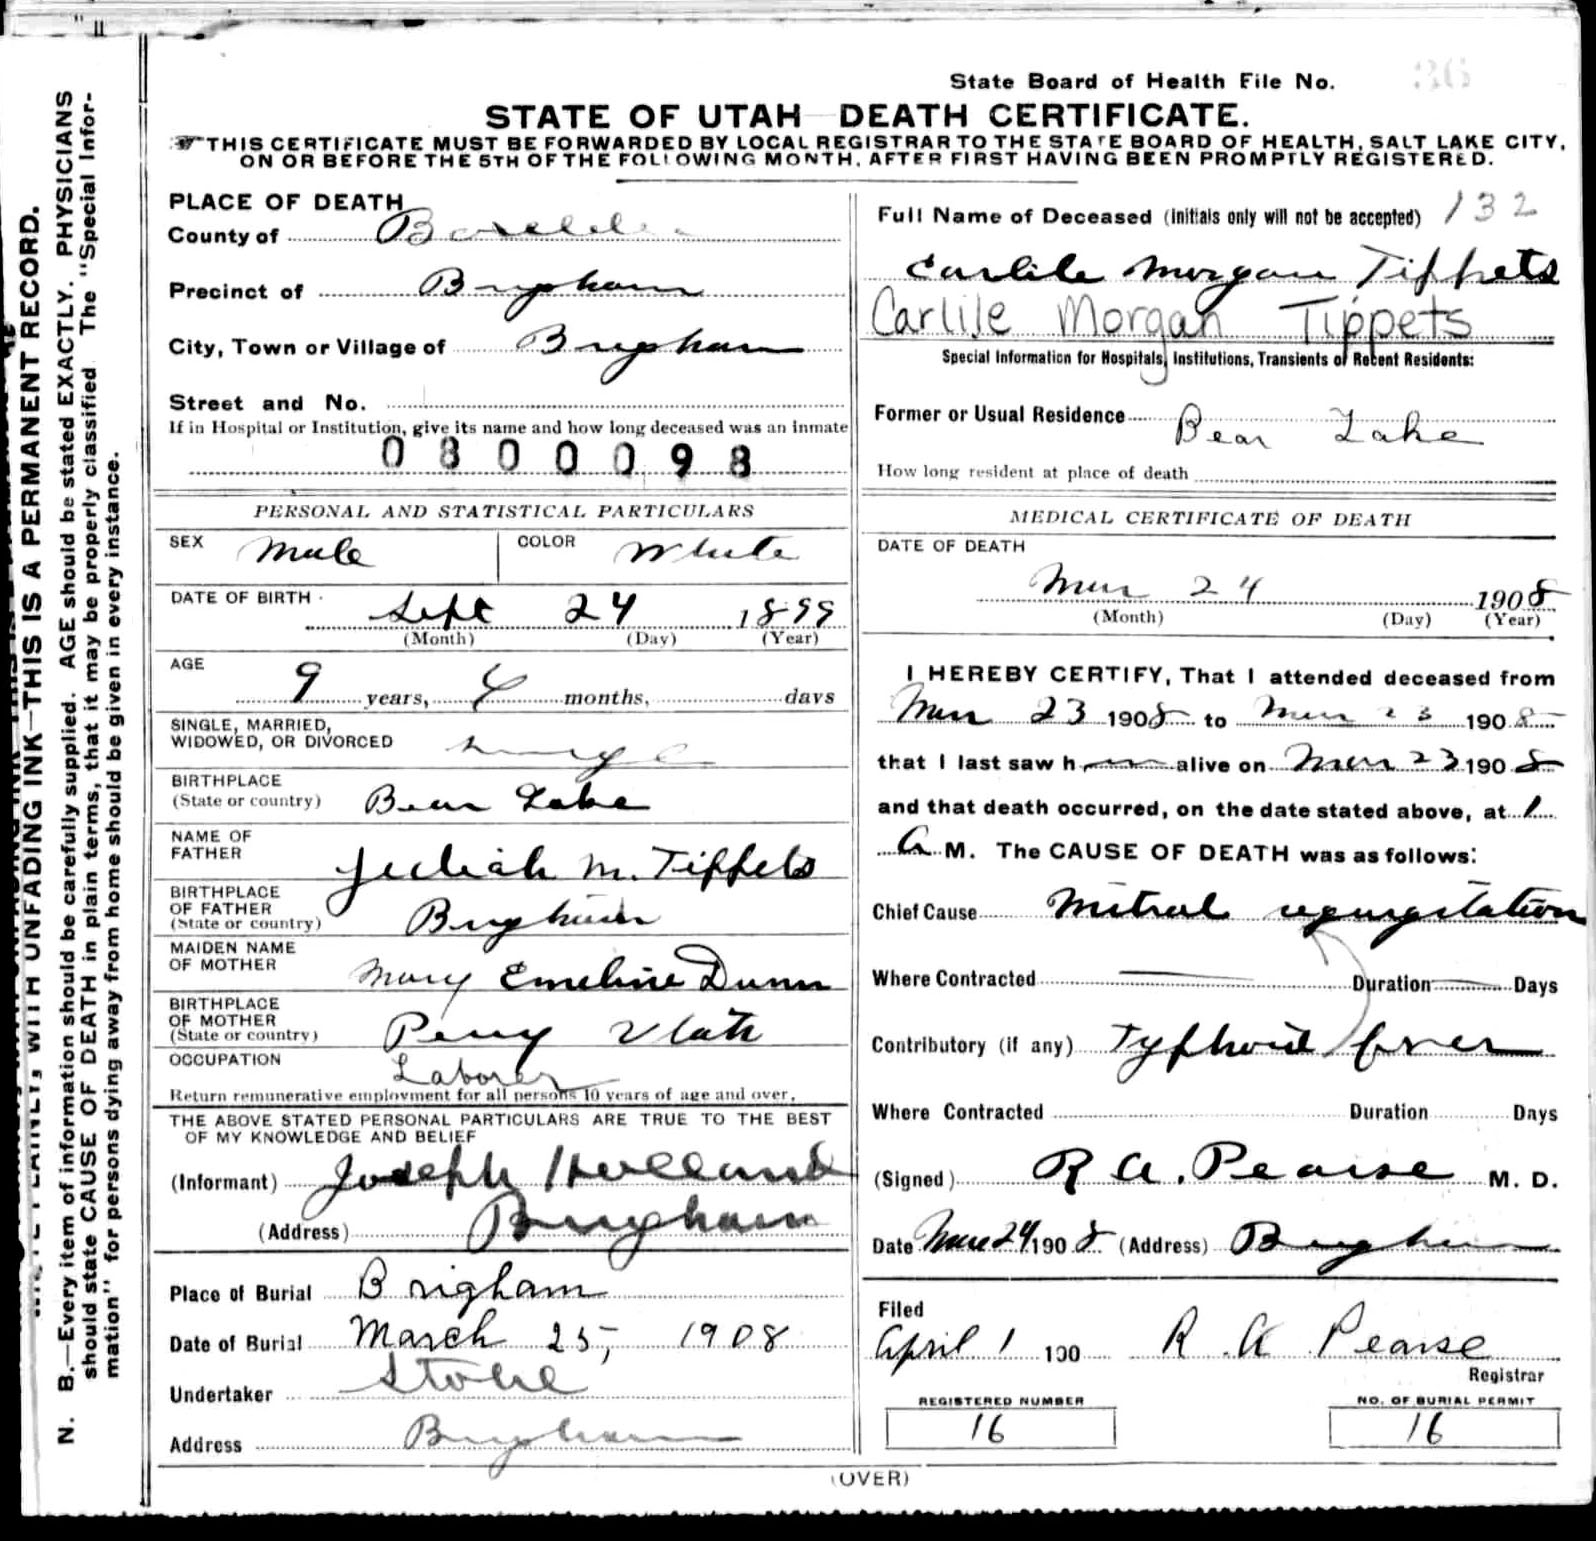 State Board of Health File No. 36
STATE OF UTAH—DEATH CERTIFICATE.
THIS CERTIFICATE MUST BE FORWARDED BY LOCAL REGISTRAR TO THE STATE BOARD OF HEALTH, SALT LAKE CITY,
ON OR BEFORE THE 5TH OF THE FOLLOWING MONTH, AFTER FIRST HAVING BEEN PROMPTLY REGISTERED.
WITH UNFADING INK—THIS IS A PERMANENT RECORD.
N. B.—Every item of information should be carefully supplied. AGE should be stated EXACTLY. PHYSICIANS
should state CAUSE OF DEATH in plain terms, that it may be properly classified The "Special Infor-
mation" for persons dying away from home should be given in every instance.
PLACE OF DEATH
County of Boxelder
Precinct of Brigham
City, Town or Village of Brigham
Street and No.
If in Hospital or Institution, give its name and how long deceased was an inmate
0800098
PERSONAL AND STATISTICAL PARTICULARS
SEX Male COLOR White
DATE OF BIRTH Sept 24 1899
(Month) (Day) (Year)
AGE
9 years, 4 months, days
SINGLE, MARRIED,
WIDOWED, OR DIVORCED single
BIRTHPLACE
(State or country) Bear Lake
NAME OF
FATHER Jediah M. Tippets
BIRTHPLACE
OF FATHER
(State or country) Brigham
MAIDEN NAME
OF MOTHER Mary Emeline Dunn
BIRTHPLACE
OF MOTHER
(State or country) Perry Utah
OCCUPATION Laborer
Return remunerative employment for all persons 10 years of age and over.
THE ABOVE STATED PERSONAL PARTICULARS ARE TRUE TO THE BEST
OF MY KNOWLEDGE AND BELIEF
(Informant) Joseph Holland
(Address) Brigham
Place of Burial Brigham
Date of Burial March 25, 1908
Undertaker Stohl
Address Brigham
Full Name of Deceased (Initials only will not be accepted) 132
Carlile Morgan Tippets
Carlile Morgan Tippets
Special Information for Hospitals, Institutions, Transients or Recent Residents:
Former or Usual Residence Bear Lake
How long resident at place of death
MEDICAL CERTIFICATE OF DEATH
DATE OF DEATH
Mar 24 1908
(Month) (Day) (Year)
I HEREBY CERTIFY, That I attended deceased from
Mar 23 1908 to Mar 23 1908
that I last saw him alive on Mar 23 1908
and that death occurred, on the date stated above, at 1
A M. The CAUSE OF DEATH was as follows:
Chief Cause Mitral regurgitation
Where Contracted Duration Days
Contributory (if any) Typhoid fever
Where Contracted Duration Days
(Signed) R A. Pearse M. D.
Date Mar 24 1908 (Address) Brigham
Filed
April 1 190 R A Pearse
Registrar
REGISTERED NUMBER NO. OF BURIAL PERMIT
16 16
(OVER)